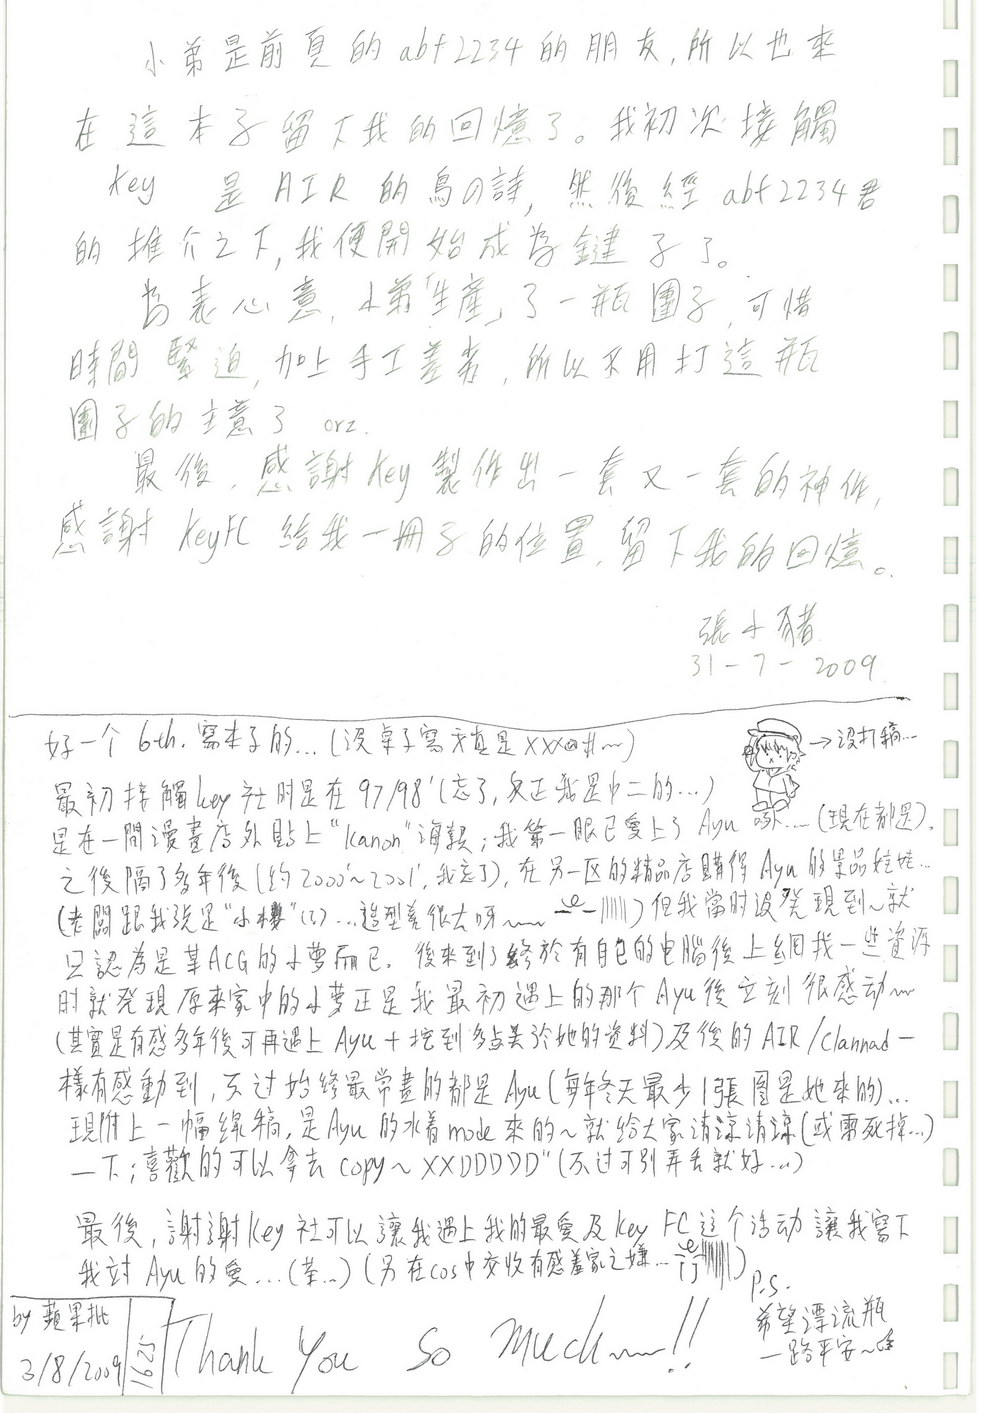 小弟是前頁的abt2234的朋友,所以也來
在這本子留下我的回憶了。我初次接觸
Key 是AIR的鳥の詩,然後經abt2234君
的推介之下,我便開始成為鍵子了。
為表心意,小弟「生產」了一瓶團子,可惜
時間緊迫,加上手工差劣,所以不用打這瓶
團子的主意了 orz.
最後,感謝Key製作出一套又一套的神作,
感謝KeyFC給我一冊子的位置,留下我的回憶。
張小豬
31-7-2009
好一个6th.寫本子的...(沒桌子寫天真是XXX@#~)
→沒打稿...
最初接觸key社时是在97/98'(忘了,反正我是中二的...)
是在一間漫畫店外貼上"Kanon"海報;我第一眼已愛上了Ayu 啄....(現在都是).
之後隔了多年後(約2000'~2001',我忘了),在另一区的精品店購得Ayu的景品娃娃...
(老闆跟我説是"小櫻"(?)...造型差很大呀~~~)但我當时沒発現到~就
只認為是某ACG的小夢而已.後來到了終於有自己的电腦後上網找一些資源
时就発現原來家中的小夢正是我最初遇上的那个Ayu後立刻很感动~~
(其實是有感多年後可再遇上Ayu+挖到多点关於她的资料)及後的AIR/Clannad一
樣有感動到,不过始終最常畫的都是Ayu(每年冬天最少1張圖是她來的)...
現附上一幅線稿,是Ayu的水着mode來的~就給大家清涼清涼(或雷死掉...)
一下;喜歡的可以拿去copy~XXDDDDD"(不过可別弄丢就好...)
最後,謝謝Key社可以讓我遇上我的最愛及Key FC这个活动讓我寫下
我対Ayu的愛...(茎...)(另在cos中交收有感羞家之嫌...)
P.S.
希望漂流瓶
一路平安~
by 蘋果批
3/8/2009
1625
Thank You So Much~~!!